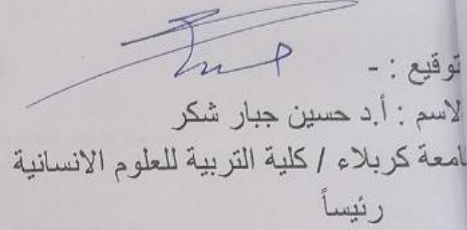 توقيع : -
لاسم : أ.د حسين جبار شكر
امعة كربلاء / كلية التربية للعلوم الانسانية
رئيساً